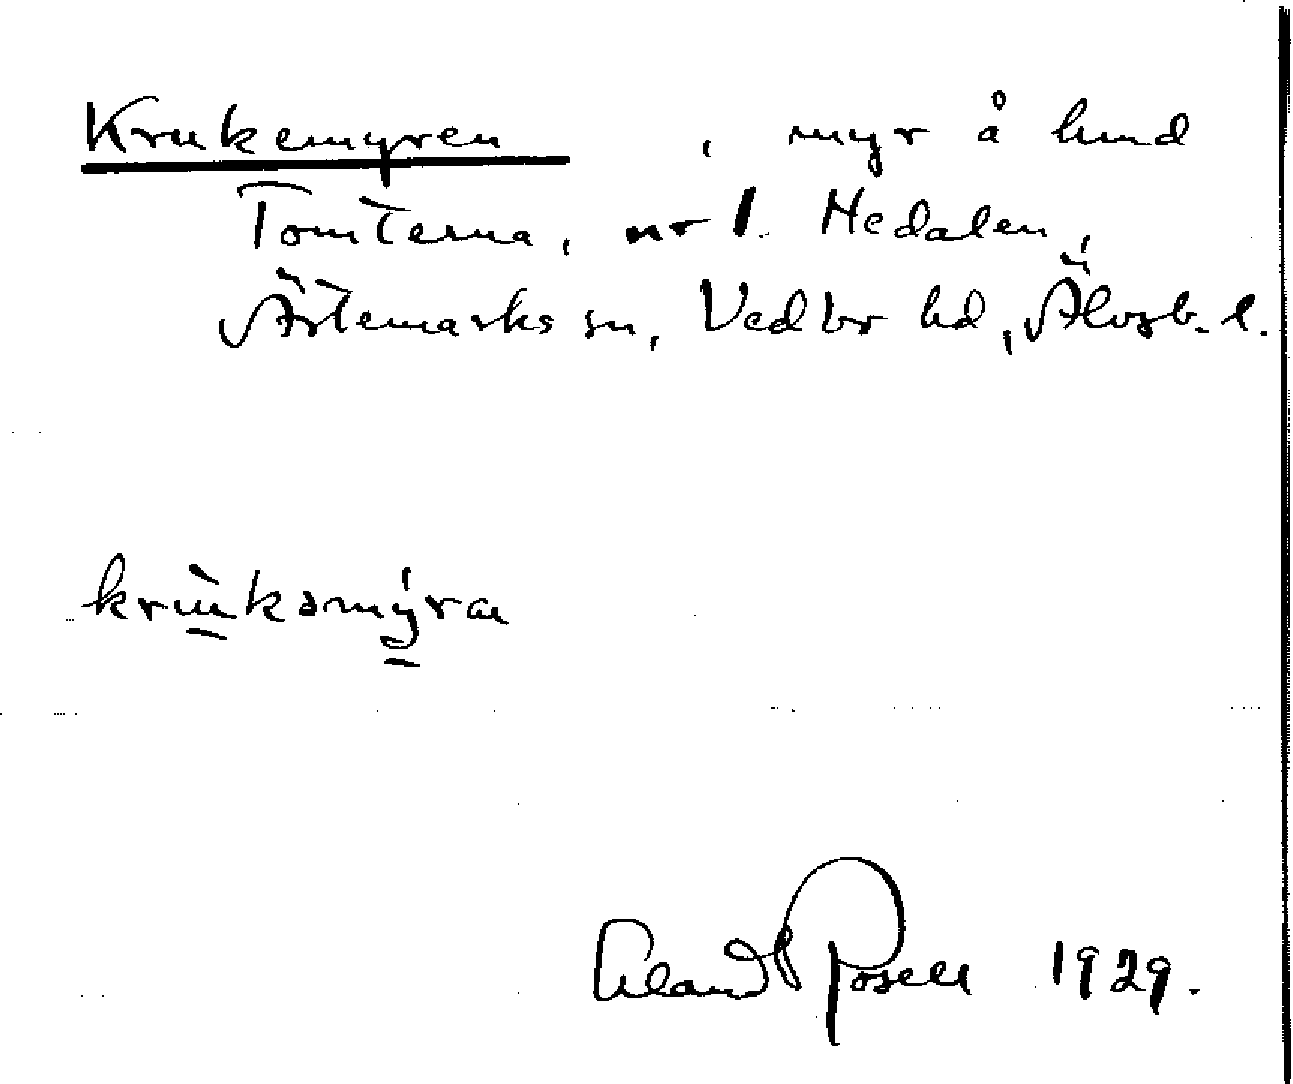 Krukemyren, myr å hmd
Tomterna, nr 1. Hedalen,
Ärtemarks sn, Vedbo hd, Älvsb. l.
krùkəmýra
Erland Rosell 1929.